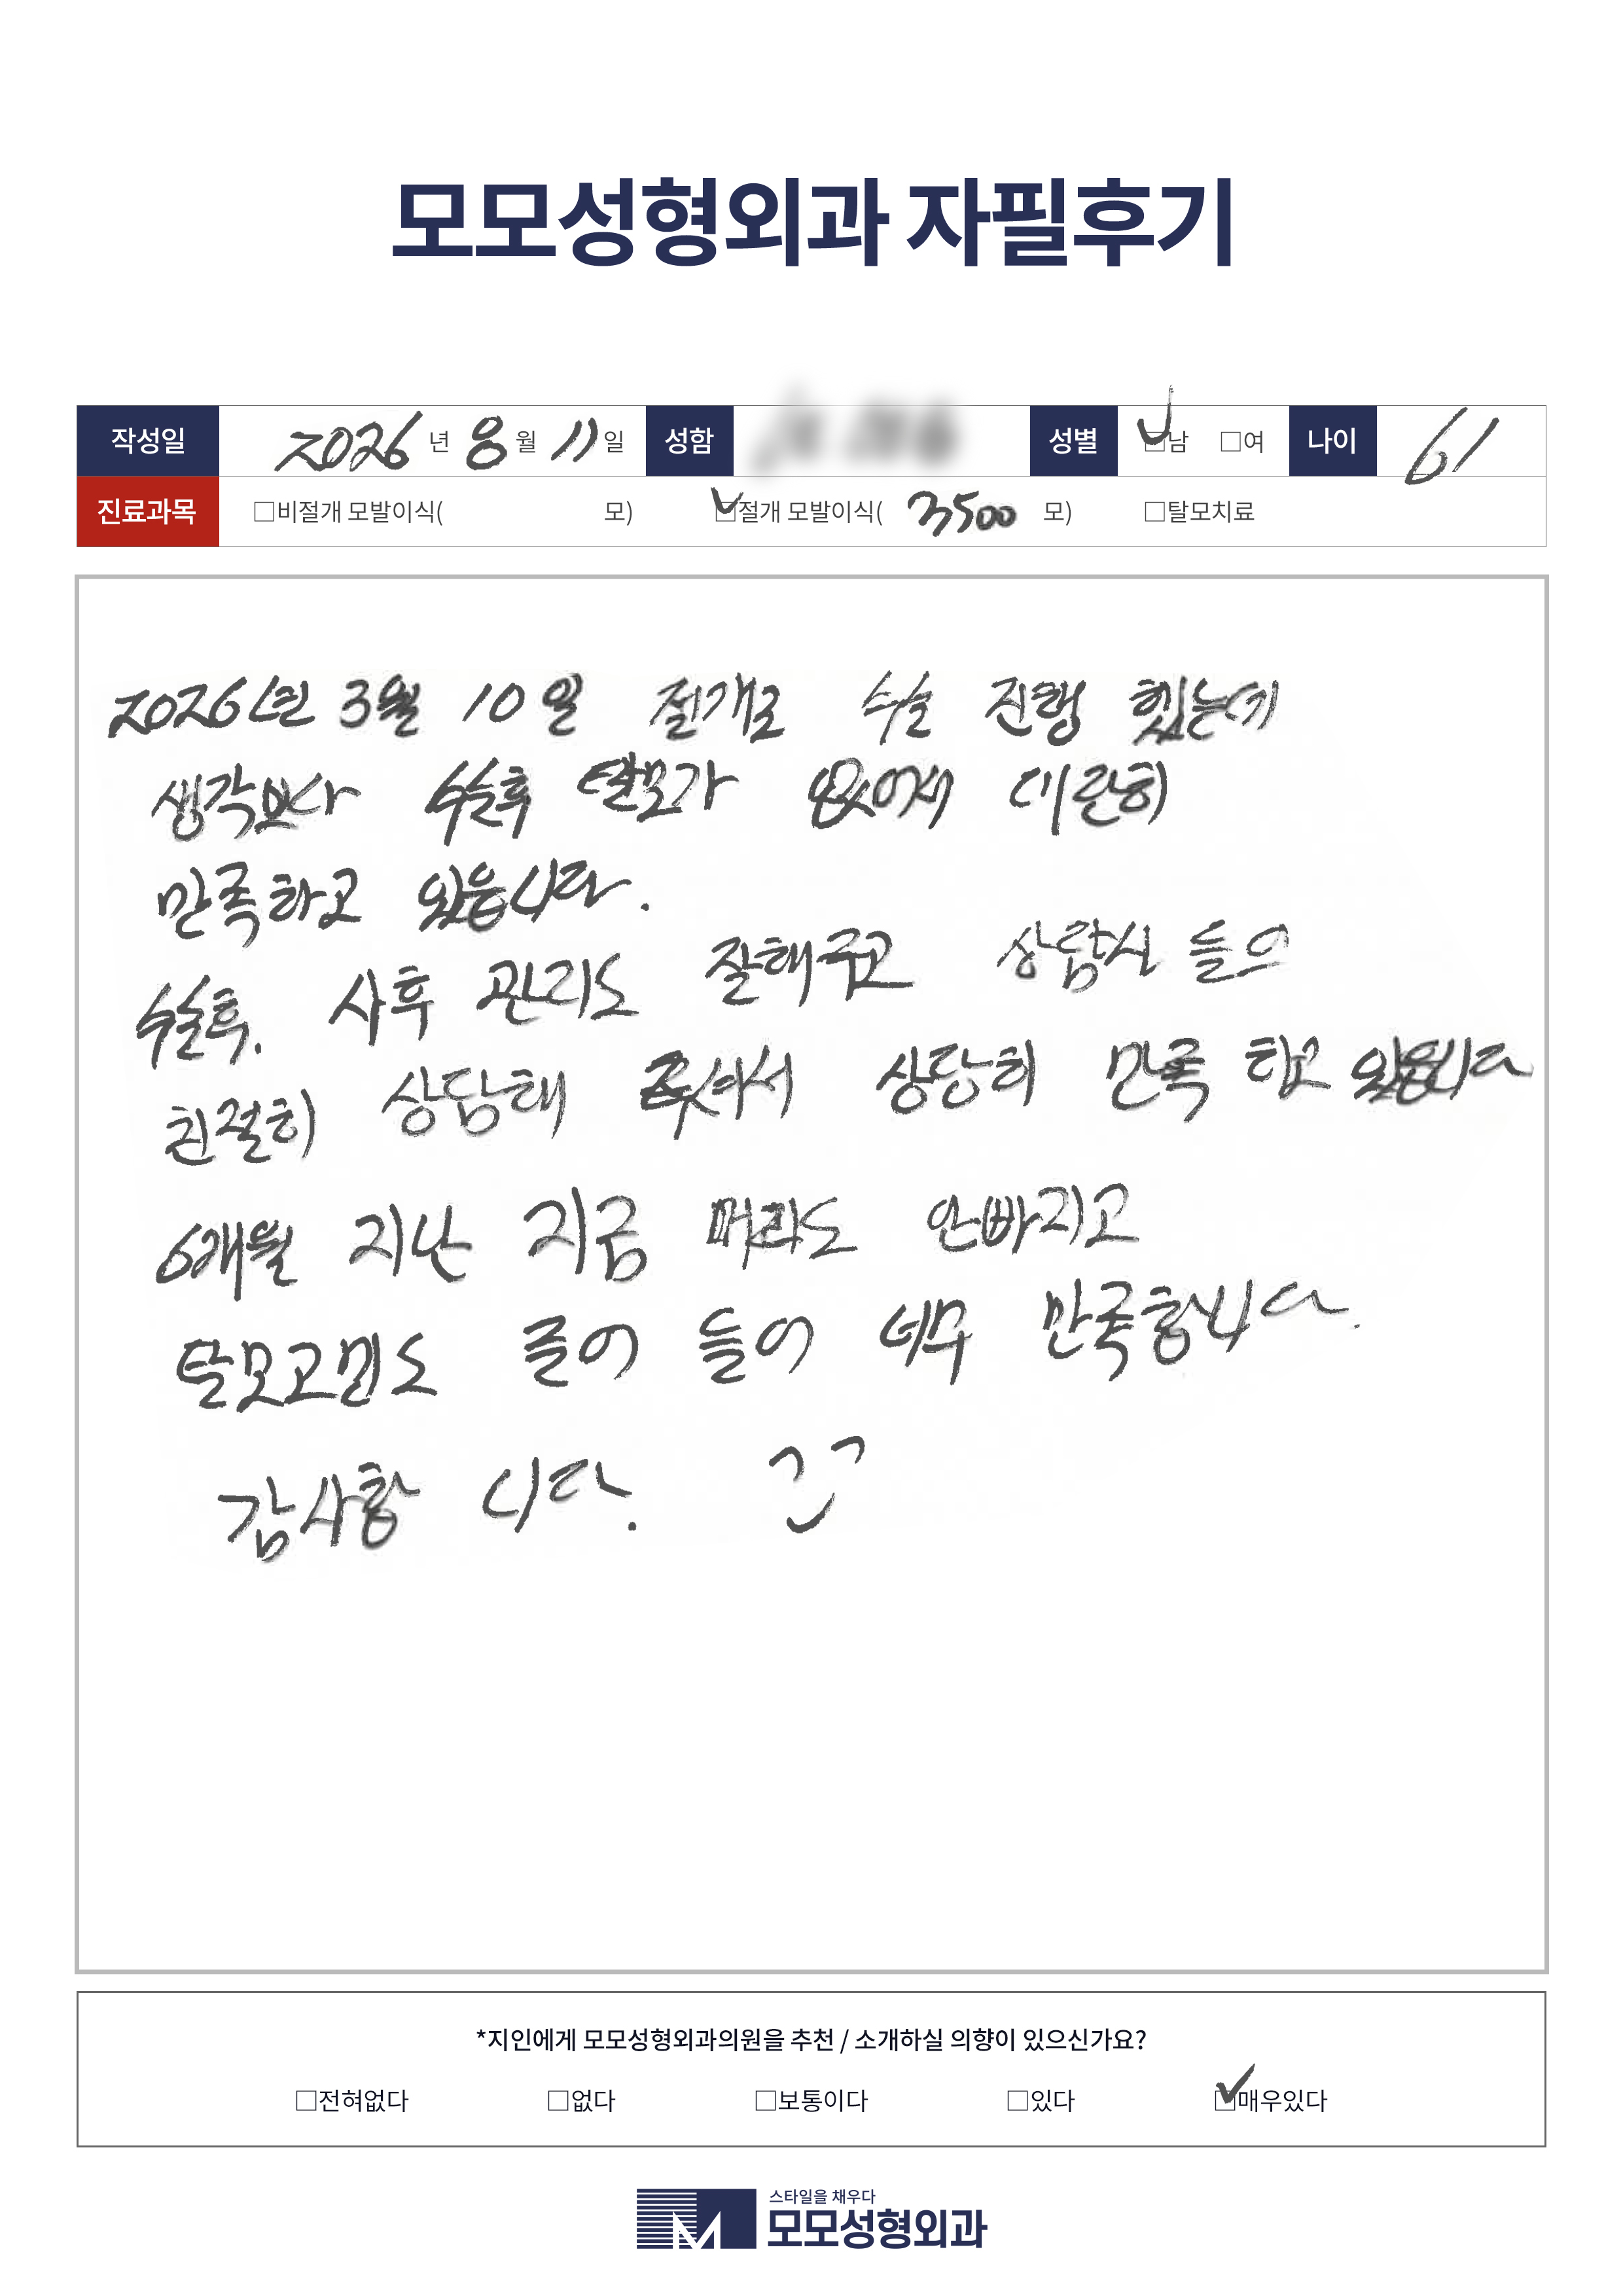 모모성형외과 자필후기
작성일 2026 년 8 월 11 일 성함 성별 □남 □여 나이 61
진료과목 □비절개 모발이식( 모) □절개 모발이식( 3500 모) □탈모치료
2026년 3월 10일 절개로 수술 진행 했는데
생각보다 수술후 탈모가 없어서 대단히
만족하고 있읍니다.
수술후. 사후 관리도 잘해주고 상담사 들의
친절히 상담해 주셔서 상당히 만족 하고 있읍니다
6개월 지난 지금 머리도 안빠지고
탈모고민도 줄어 들어 너무 만족합니다.
감사합 니다.
*지인에게 모모성형외과의원을 추천 / 소개하실 의향이 있으신가요?
□전혀없다 □없다 □보통이다 □있다 □매우있다
스타일을 채우다
모모성형외과